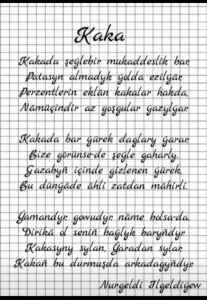 Kaka
Kakada şeýlebir mukaddeslik bar,
Patasyn almadyk ýolda ezilýär,
Perzentlerin eklän kakalar hakda,
Nämüçindir az goşgular ýazylýar.
Kakada bar ýürek daglary ýarar
Bize görünse-de şeýle gaharly.
Gazabyň içinde gizlenen ýürek,
Bu dünýäde ähli zatdan mähirli.
Ýamandyr, gowudyr, näme bolsa-da,
Dirikä ol seniň bagtyň barýňdyr.
Kakasyny sylan, Ýaradan sylar,
Kakaň bu durmuşda arkadagyňdyr.
Nurgeldi Ilgeldiýew